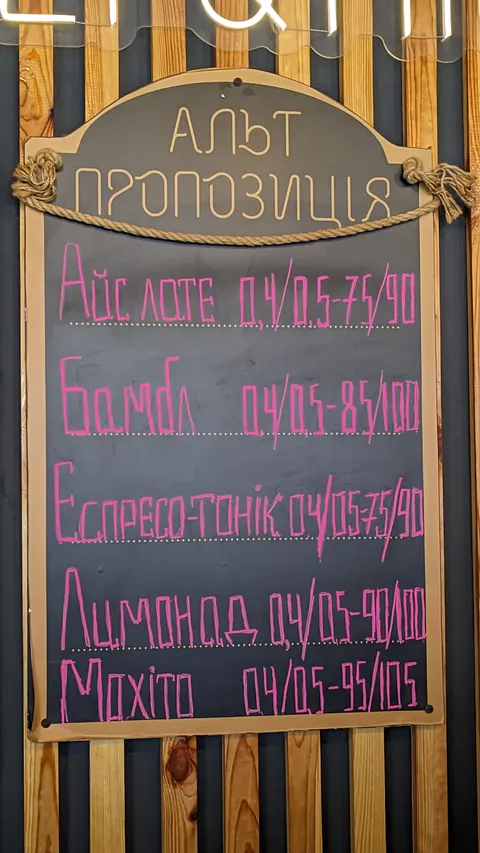 АЛЬТ
ПРОПОЗИЦІЯ
Айс лате 0,4/0,5-75/90
Бамбл 0,4/0,5-85/100
Еспресо-тонік 04/05-75/90
Лимонад 0,4/0,5-90/100
Мохіто 0,4/0,5-95/105